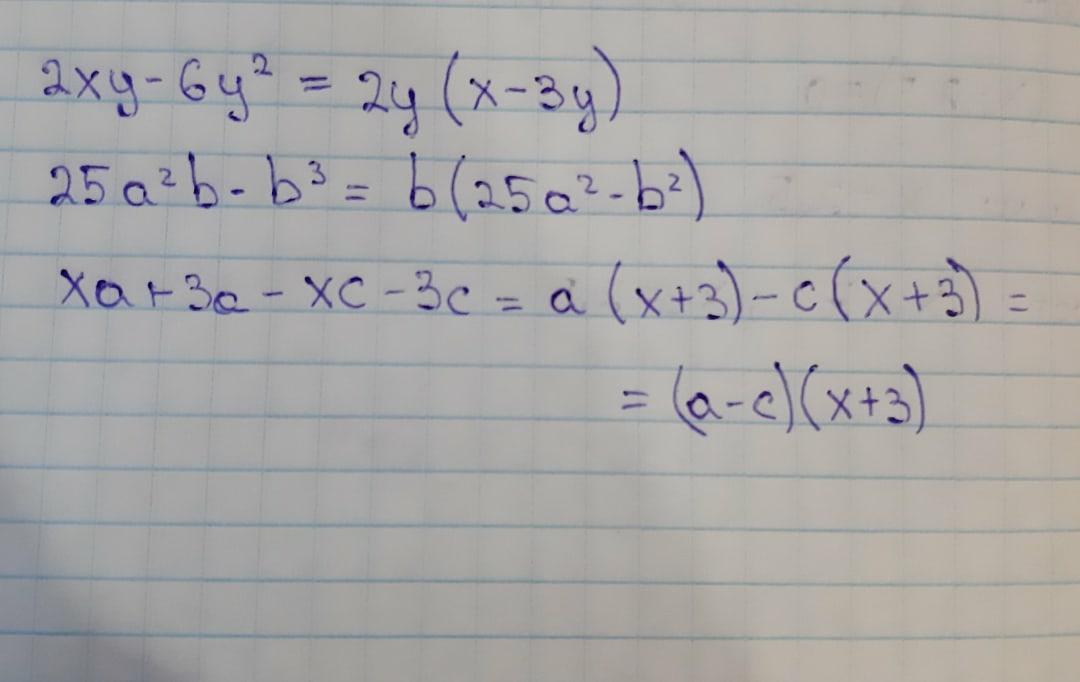 2xy - 6y² = 2y (x - 3y)
25a²b - b³ = b(25a² - b²)
xa + 3a - xc - 3c = a (x+3) - c (x+3) =
= (a-c)(x+3)